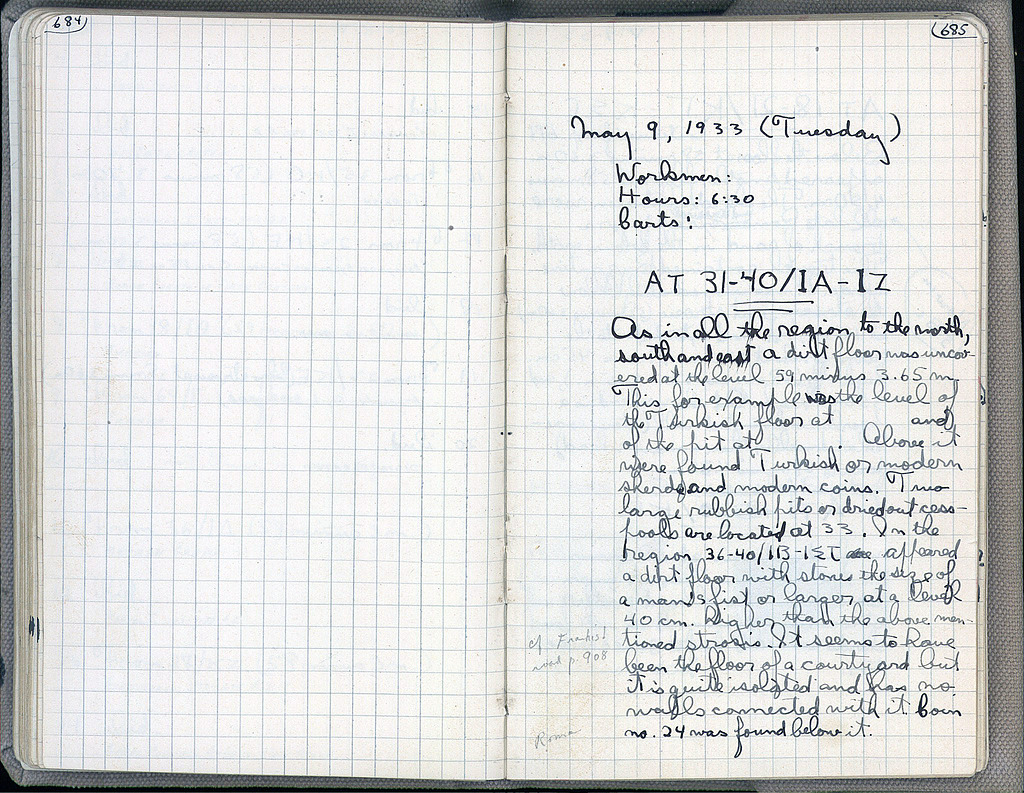 684
685
May 9, 1933 (Tuesday)
Workmen:
Hours: 6:30
Carts:
AT 31-40/IA-IZ
As in all the region to the north,
south and east a dirt floor was uncov-
ered at the level 59 minus 3.65 m.
This for example was the level of
the Turkish floor at and
of the pit at . Above it
were found Turkish or modern
sherds and modern coins. Two
large rubbish pits or dried out cess-
pools are located at 33. In the
region 36-40/ appeared
a dirt floor with stones the size of
a man's fist or larger at a level
40 cm. higher than the above men-
tioned strosis. It seems to have
been the floor of a courtyard but
it is quite isolated and has no
walls connected with it. Coin
no. 24 was found below it.
cf
road p. 908